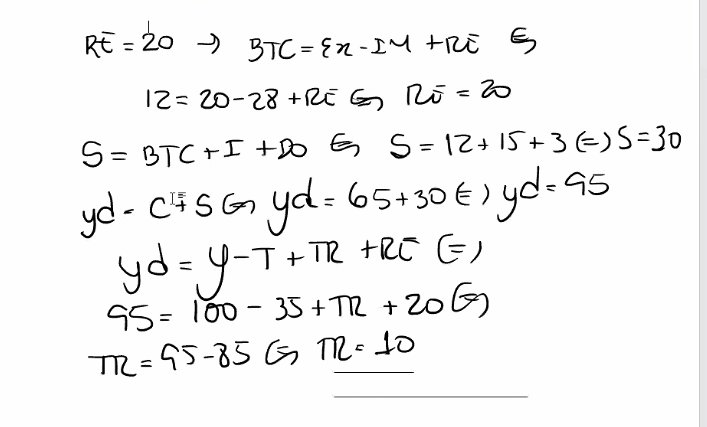 RE = 20 → BTC = Ex - IM + RE ⇔
12 = 20 - 28 + RE ⇔ RE = 20
S = BTC + I + DO ⇔ S = 12 + 15 + 3 ⇔ S = 30
yd = C + S ⇔ yd = 65 + 30 ⇔ yd = 95
yd = y - T + TR + RE ⇔
95 = 100 - 35 + TR + 20 ⇔
TR = 95 - 85 ⇔ TR = 10